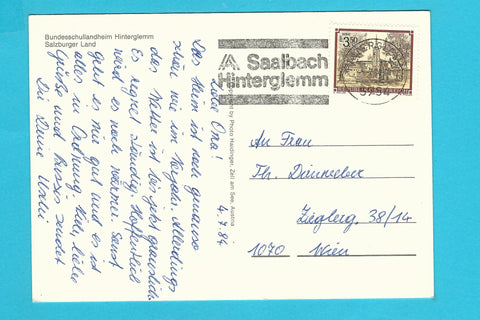 Bundesschullandheim Hinterglemm
Salzburger Land
Liebe Oma!
Das Heim ist noch genauso
schön wie im Vorjahr. Allerdings
das Wetter ist bis jetzt grauslich.
Es regnet ständig. Hoffentlich
wird es noch wärmer. Sonst
geht es mir gut und es ist
alles in Ordnung. Viele, liebe
Grüße und Bussis sendet
Dir Deine
4.7.84
Photo Haidinger, Zell am See, Austria
Saalbach
Hinterglemm
5754
An Frau
Th.
Zieglerg. 38/14
1070 Wien